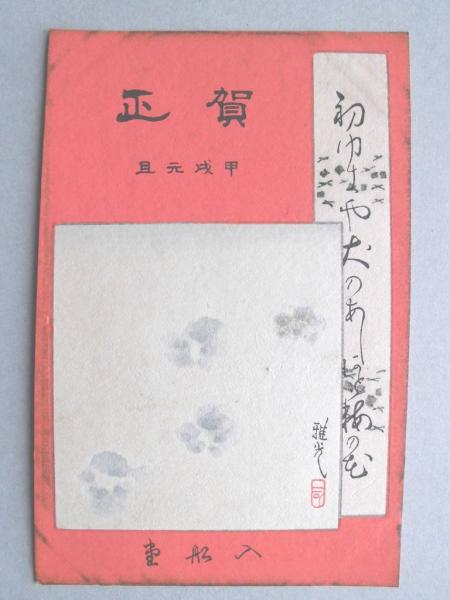 賀正
甲戌元旦
初ゆきや犬のあし跡梅の花
雅光
入船堂